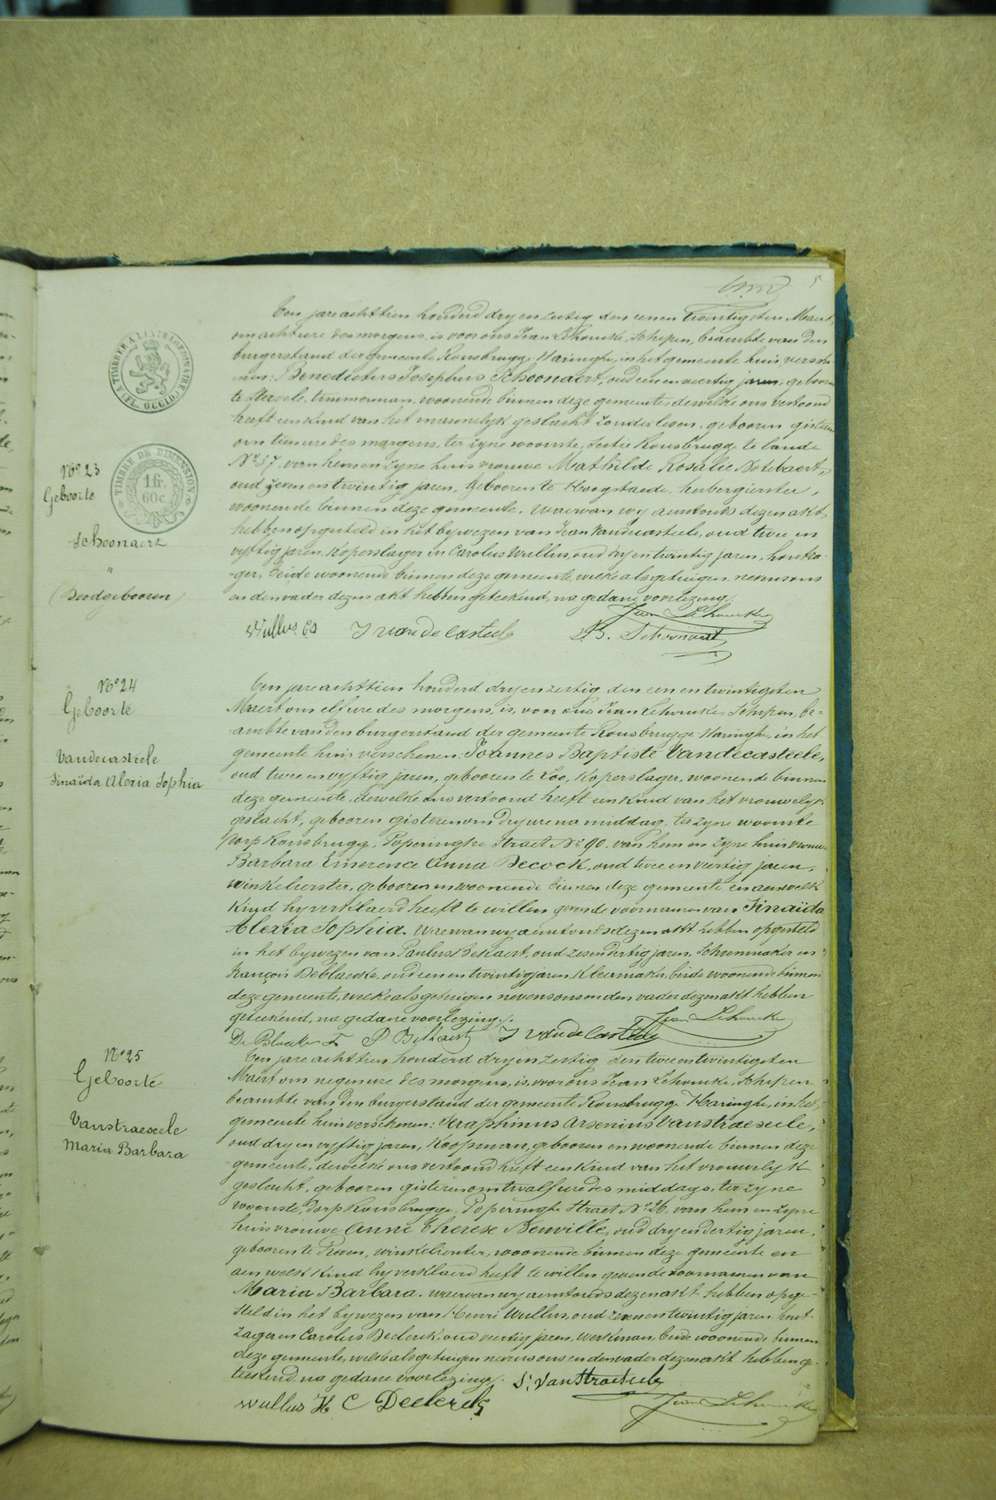 5
Een jare achttien honderd dry en zestig den eenen twintigsten Maert
om acht ure des morgens, is voor ons Jean Lehoucke, Schepen, beambte van den
burgerstand der gemeente Rousbrugge Haringhe, in het gemeente huis, versche-
nen: Benedictus Josephus Schoonaert, oud een en veertig jaren, geboren
te Stavele, timmerman, woonende binnen deze gemeente, dewelke ons vertoond
heeft een kind van het mannelyk geslacht zonder leven, geboren gisteren
om tien ure des morgens, ter zyne woonste, sectie Rousbrugge, te lande
No 37, van hem en zyne huisvrouwe Mathilde Rosalie
oud zeven en twintig jaren, geboren te Hoogstaede, herbergierster,
woonende binnen deze gemeente. Waervan wy aenstonds dezen akt
hebben opgesteld in het bywezen van Jean Vandecasteele, oud twee en
vyftig jaren, koperslager en Carolus Wullus, oud dry en twintig jaren, houtza-
ger, beide woonende binnen deze gemeente, welke als getuigen nevens ons
en den vader dezen akt hebben geteekend, na gedane voorlezing.
Jean Lehoucke
Wullus Co J van de Casteele B. Schoonaert
TIMBRE DE DIMENSION
1 f.
60 c
FL. OCCID.
No 23
Geboorte
Schoonaert
"
(Doodgebooren)
No 24
Geboorte
Vandecasteele
Sinaïda Alexia Sophia
Een jare achttien honderd dry en zestig, den een en twintigsten
Maert om elf ure des morgens, is, voor ons Jean Lehoucke, Schepen, be-
ambte van den burgerstand der gemeente Rousbrugge Haringhe, in het
gemeente huis, verschenen: Joannes Baptiste Vandecasteele,
oud twee en vyftig jaren, geboren te Loo, koperslager, woonende binnen
deze gemeente, dewelke ons vertoond heeft een kind van het vrouwelyk
geslacht, gebooren gisteren om dry ure na middag, ter zyne woonste
dorp Rousbrugge, Poperinghe straet No 90, van hem en zyne huisvrouwe
Barbara Emerence Anna Decock, oud twee en veertig jaren,
winkelierster, gebooren en woonende binnen deze gemeente en aen welk
kind hy verklaerd heeft te willen geven de voornamen van Sinaïda
Alexia Sophia. Waervan wy aenstonds dezen akt hebben opgesteld
in het bywezen van Paulus Bekaert, oud zes en dertig jaren, schoenmaker en
François Deblaecke, oud een en twintig jaren, kleermaker, beide woonende binnen
deze gemeente, welke als getuigen nevens ons en den vader dezen akt hebben
geteekend, na gedane voorlezing.
Jean Lehoucke
J van de Casteele
No 25
Geboorte
Vanstraeseele
Maria Barbara
Een jare achttien honderd dry en zestig den twee en twintigsten
Maert om negen ure des morgens, is, voor ons Jean Lehoucke, Schepen
beambte van den burgerstand der gemeente Rousbrugge Haringhe, in het
gemeente huis verschenen: Seraphinus Arsenius Vanstraeseele,
oud dry en vyftig jaren, koopman, gebooren en woonende binnen deze
gemeente, dewelke ons vertoond heeft een kind van het vrouwelyk
geslacht, gebooren gisteren om twalf ure des middags, ter zyne
woonste, dorp Rousbrugge, Poperinghe Straet No 26, van hem en zyne
huisvrouwe Anne Therese, oud dry en dertig jaren,
gebooren te, winkelierster, woonende binnen deze gemeente en
aen welk kind hy verklaerd heeft te willen geven de voornamen van
Maria Barbara. Waervan wy aenstonds dezen akt hebben opge-
steld in het bywezen van Henri Wullus, oud zeven en twintig jaren, hout-
zager en Carolus Declerck, oud veertig jaren, werkman, beide woonende binnen
deze gemeente, welke als getuigen nevens ons en den vader dezen akt hebben ge-
teekend, na gedane voorlezing. S: VanStraeseele
Wullus H C Declerck Jean Lehoucke